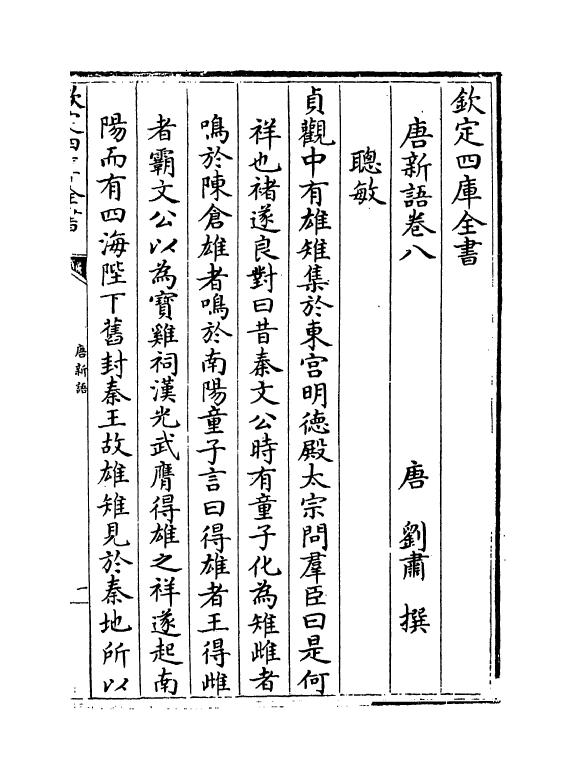 欽定四庫全書
唐新語卷八
唐 劉肅 撰
聰敏
貞觀中有雄雉集於東宮明德殿太宗問羣臣曰是何
祥也禇遂良對曰昔秦文公時有童子化為雉雌者
鳴於陳倉雄者鳴於南陽童子言曰得雄者王得雌
者霸文公以為寳雞祠漢光武膺得雄之祥遂起南
陽而有四海陛下舊封秦王故雄雉見於秦地所以
欽定四庫全書
唐新語
一